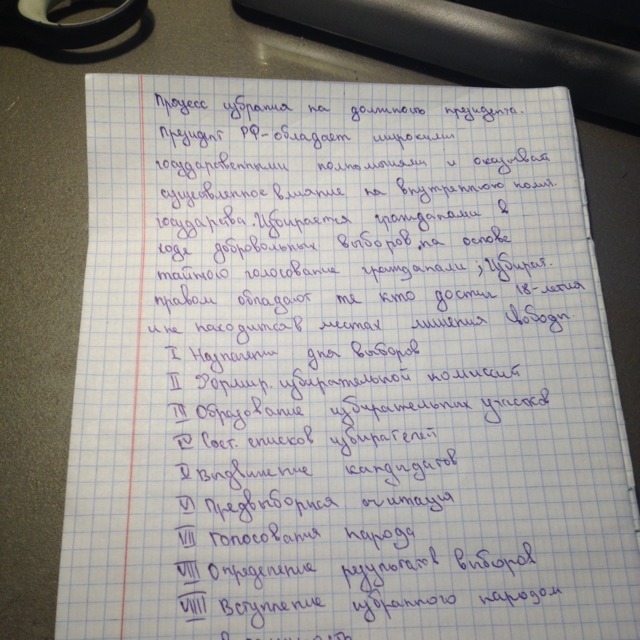 Процесс избрания на должность президента.
Президент РФ-обладает широкими
государственными полномочиями и оказывает
существенное влияние на внутреннюю полит.
государства. Избирается гражданами в
ходе добровольных выборов, на основе
тайного голосование гражданами, Избират.
правом обладают те кто достиг 18-летия
и не находится в местах лишения свободы.
I Назначение дня выборов
II Формир. избирательной комиссий
III Образование избирательных участков
IV Сост. списков избирателей
V Выдвижение кандидатов
VI Предвыборная агитация
VII Голосования народа
VIII Определение результатов выборов
VIIII Вступление избранного народом
в должность